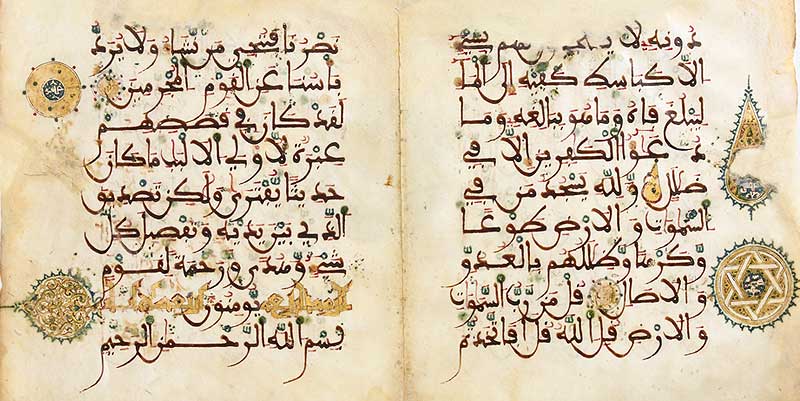 دونه لا لهم بشيء
الا كبسط كفيه الى الما
ليبلغ فاه وما هو ببلغه وما
دعؤا الكفرين الا في
ضلل ولله يسجد من في
السموت والارض طوعا
وكرها وظللهم بالغدو
والاصال قل من رب السموت
والارض قل الله قل افاتخذتم
نصرنا فننجي من نشا ولا يرد
باسنا عن القوم المجرمين
لقد كان في قصصهم
عبرة لاولي الالبب ما كان
حديثا يفترى ولكن تصديق
الذي بين يديه وتفصيل كل
شيء وهدى ورحمة لقوم
يومنون
بسم الله الرحمن الرحيم